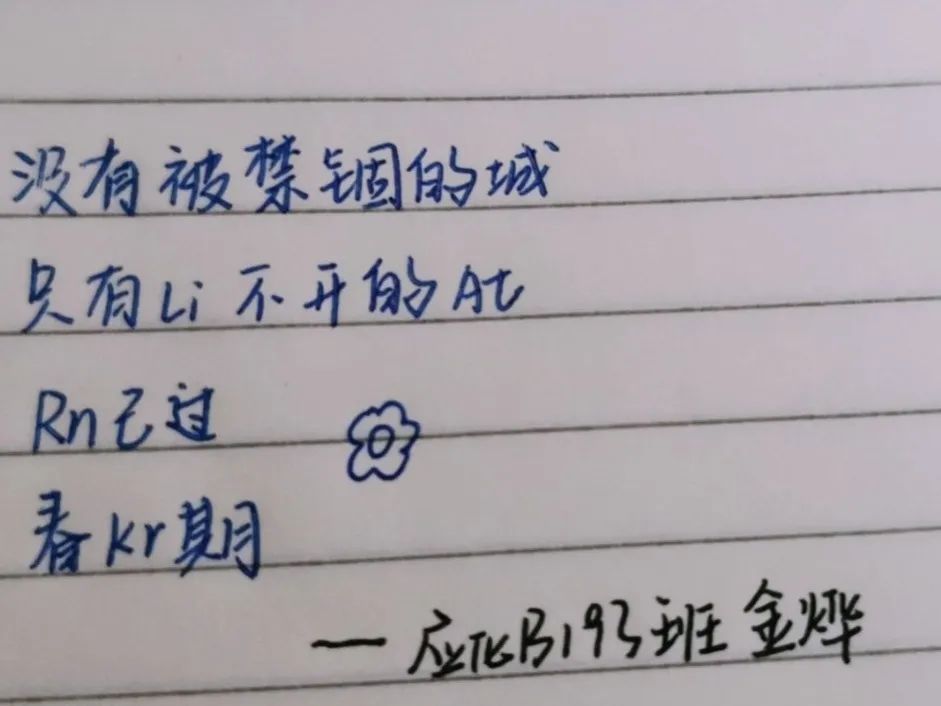 没有被禁锢的城
只有Li不开的At
Rn已过
春Kr期
—应化B193班金烨